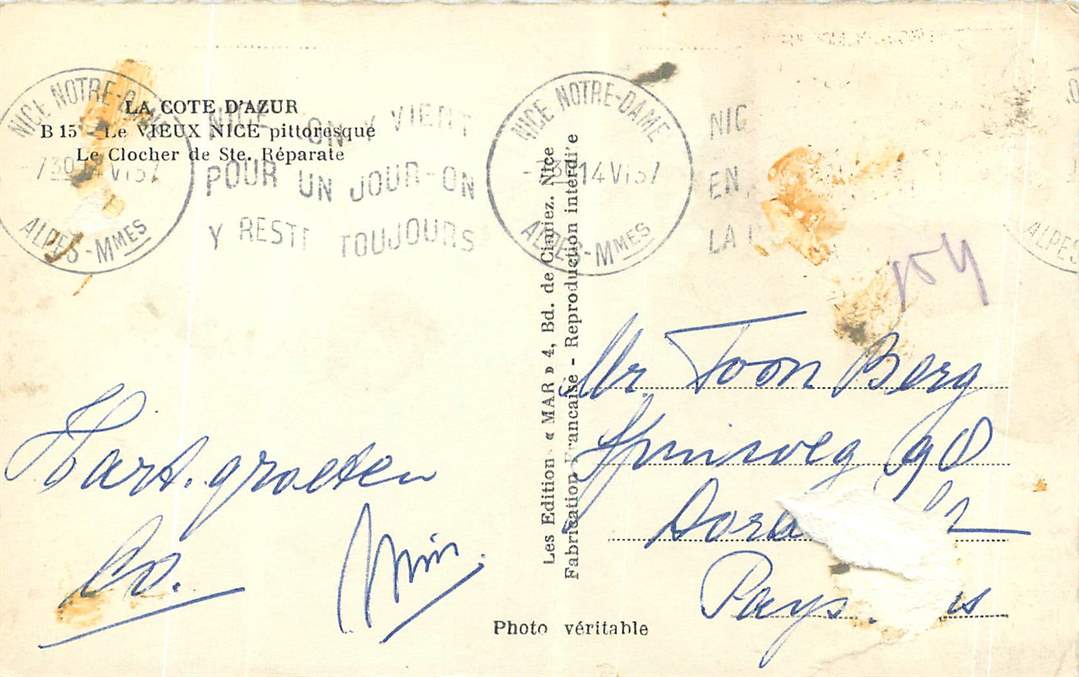 LA COTE D'AZUR
B 15 - Le VIEUX NICE pittoresque
Le Clocher de Ste. Réparate
NICE NOTRE-DAME
14 VI 57
ALPES-MMES
NICE ON Y VIENT
POUR UN JOUR-ON
Y RESTE TOUJOURS
NICE NOTRE-DAME
14 VI 57
ALPES-MMES
NIC
EN
LA
ALPES
Les Edition « MAR » 4, Bd. de Cimiez. Nice
Fabrication Francaise - Reproduction interdite
Hart. groeten
Mr. Toon Berg
98
Pays.
Photo véritable